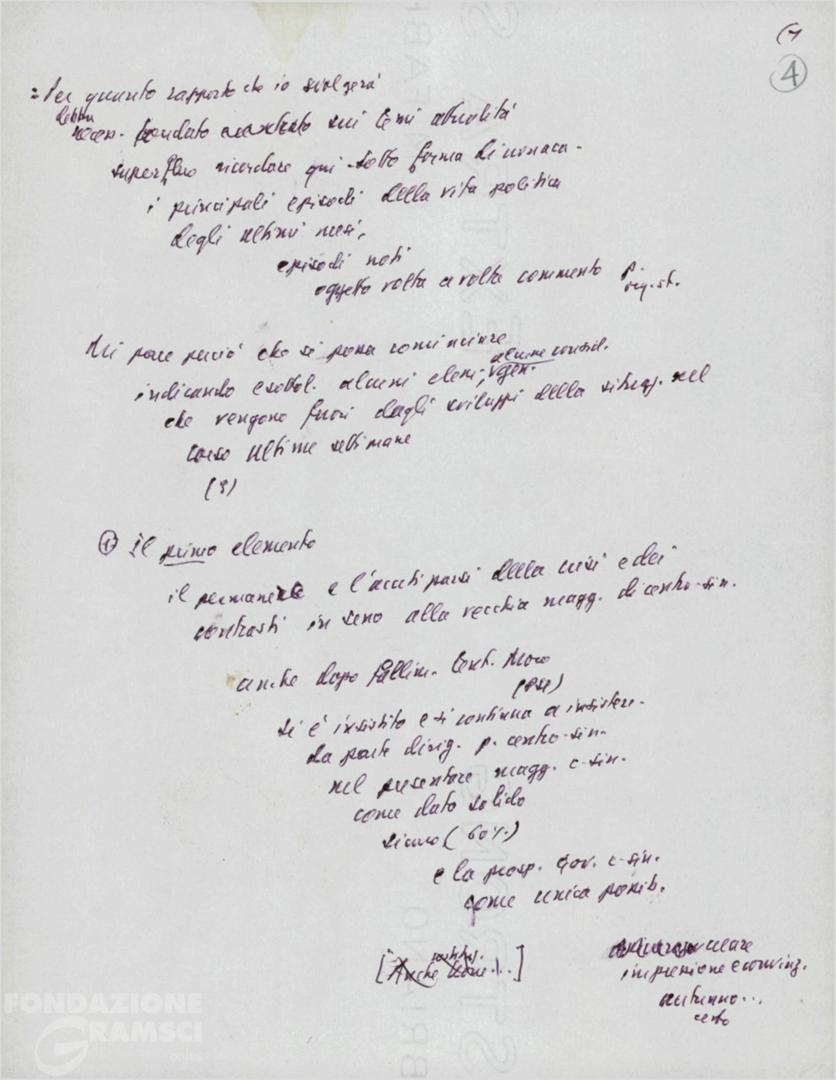 (7
4
= Per quanto rapporto che io svolgerò
debba
necess. fondato soprattutto sui temi attualità
superfluo ricordare qui sotto forma di cronaca -
i principali episodi della vita politica
degli ultimi mesi,
episodi noti
oggetto volta a volta commento p.
Mi pare perciò che si possa cominciare
alcune consid.
indicando e sottol. alcuni elem., gen.
che vengono fuori dagli sviluppi della situaz. nel
corso ultime settimane
(3)
① Il primo elemento
il permanere e l'acutizzarsi della crisi e dei
contrasti in seno alla vecchia magg. di centro-sin.
anche dopo fallim. tent. Moro
si è insistito e si continua a insistere -
da parte dirig. p. centro-sin.
nel presentare magg. c-sin.
come dato solido
sicuro (60%)
e la prosp. gov. c-sin.
come unica possib.
[Anche Leone...]
impressione e convinz.
autunno...
certo
FONDAZIONE
GRAMSCI